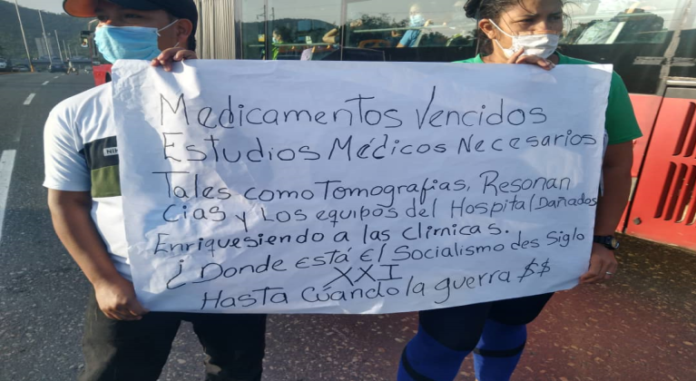 Medicamentos Vencidos
Estudios Médicos Necesarios
Tales como Tomografias, Resonan
cias y Los equipos del Hospital Dañados
Enriquesiendo a las clirnicas.
¿Donde está El Socialismo des Siglo
XXI
Hasta Cuándo la guerra $$